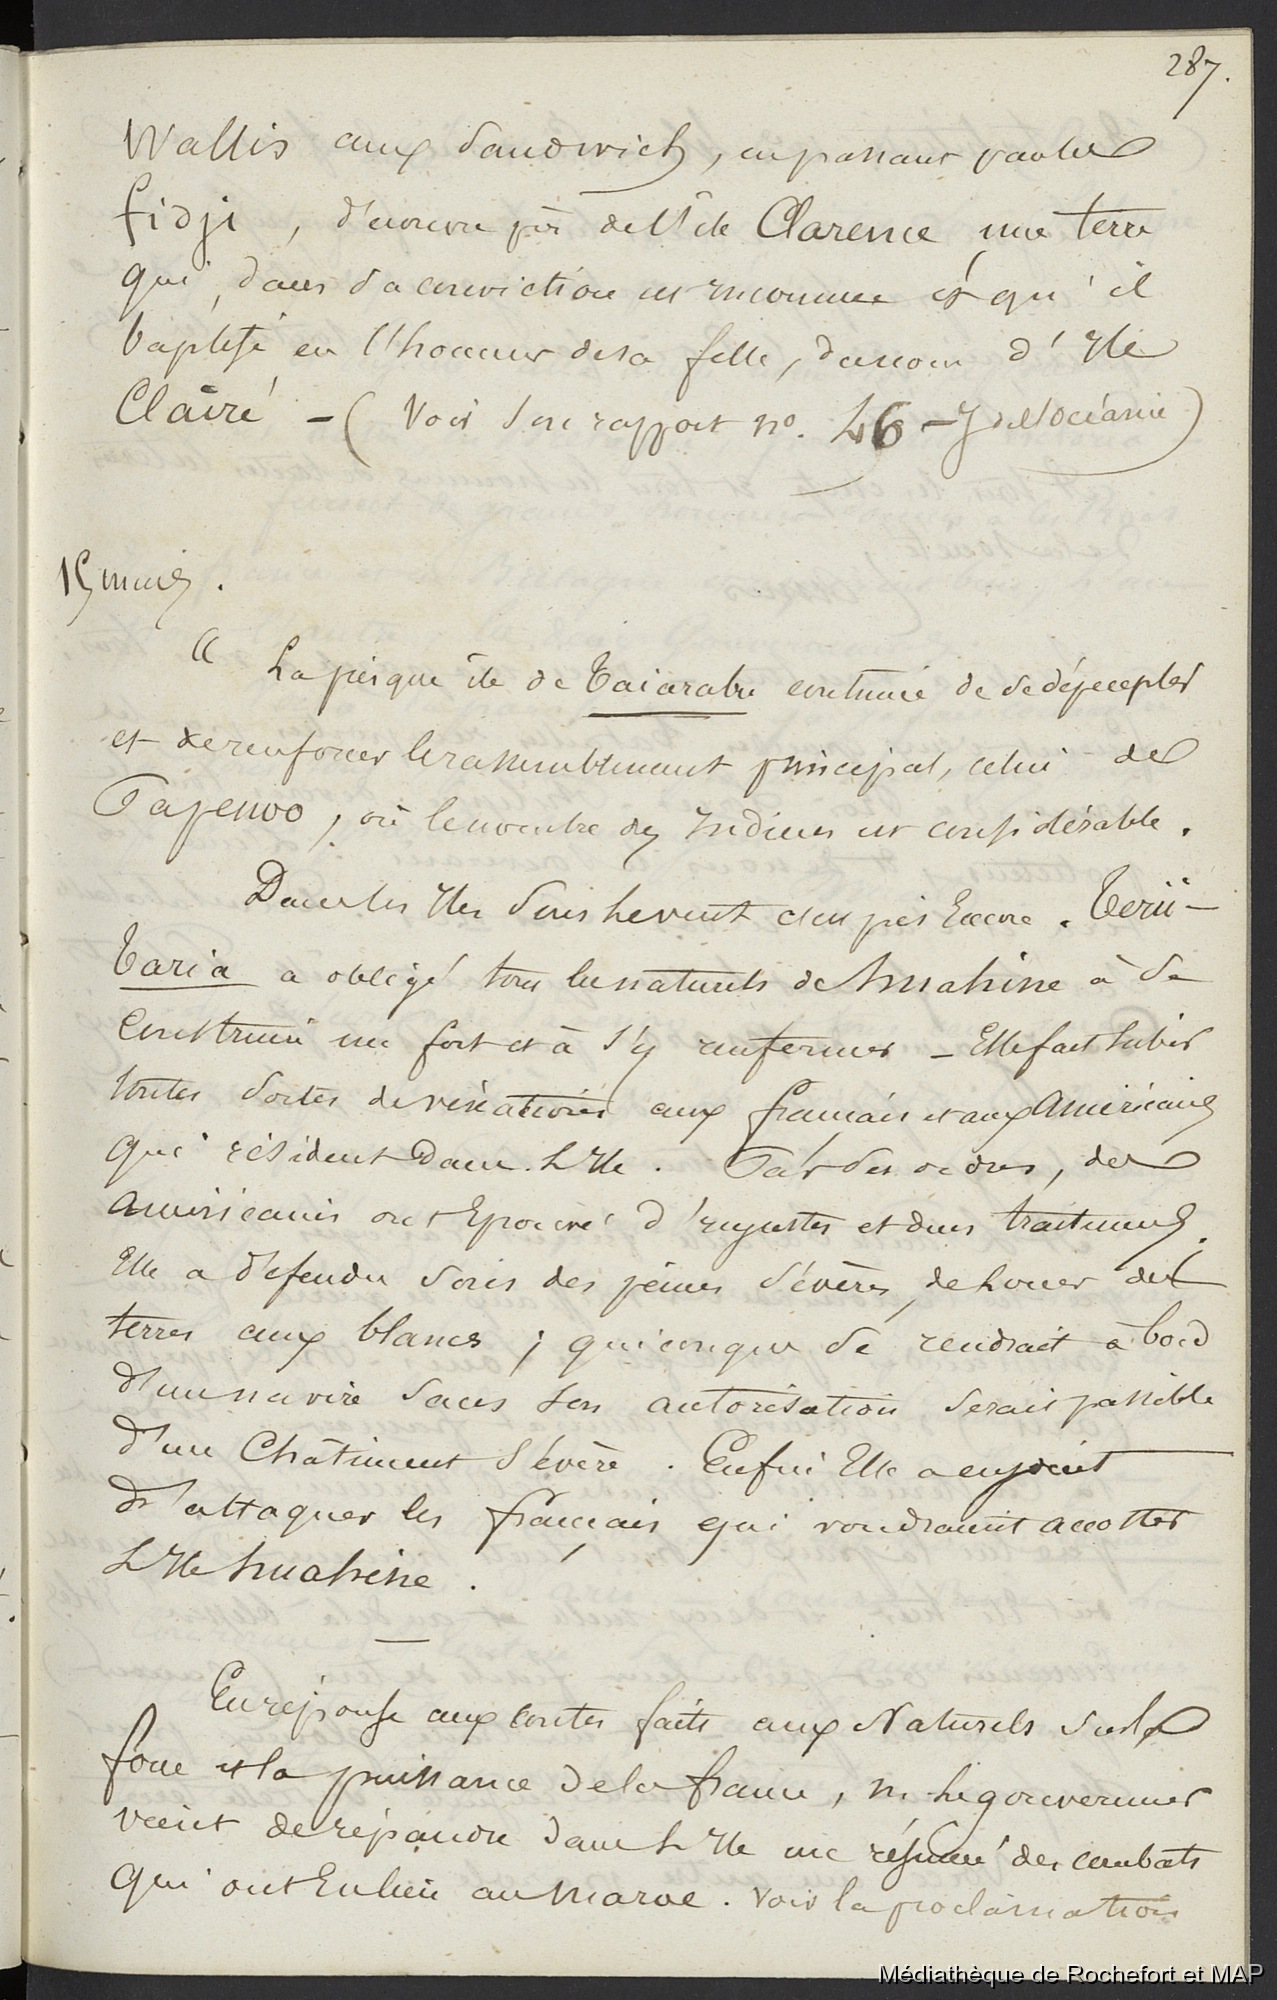 287.
Wallis aux Sandwich, en passant par les
fidji, découvre près de l'île Clarence une terre
qui, dans sa conviction est inconnue et qu'il
baptise en l'honneur de sa fille, du nom d'Ile
Claire - (Voir son rapport no. 46 - J de l'océanie)
15 mars.
" La presque île de Taiarabu continue de se dépeupler
et de renforcer le rassemblement principal, celui de
Papenoo, où le nombre des Indiens est considérable.
Dans les Iles sous le vent c'est pis encore. Terii-
taria a obligé tous les naturels de huahine à se
construire un fort et à s'y renfermer - Elle fait subir
toutes sortes de vexations aux français et aux Américains
qui résident dans L'Ile. Par ses ordres, des
américains ont Eprouvé d'injustes et durs traitemens.
Elle a défendu sous des peines sévères, de louer des
terres aux blancs ; quiconque se rendrait à bord
d'un navire sans son autorisation serait passible
d'un Châtiment sévère. Enfin Elle a enjoint
d'attaquer les français qui voudraient accoster
L'Ile huahine.
En réponse aux contes faits aux Naturels sur la
force et la puissance de la france, M. le gouverneur
vient de répandre dans L'Ile un résumé des combats
qui ont Eu lieu au Maroc. Voir la proclamation
Médiathèque de Rochefort et MAP